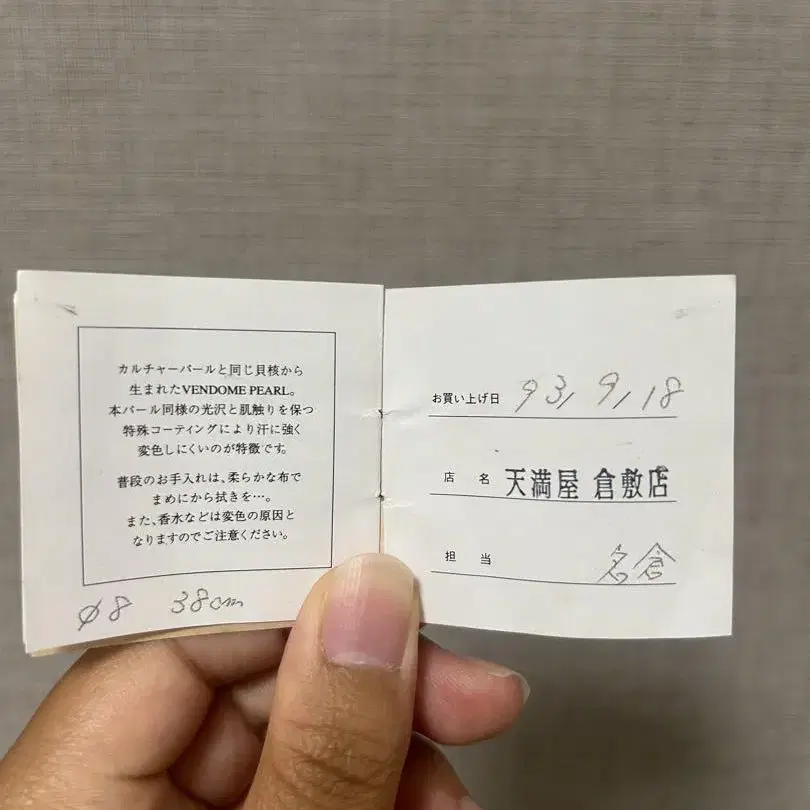 カルチャーパールと同じ貝核から
生まれたVENDOME PEARL。
本パール同様の光沢と肌触りを保つ
特殊コーティングにより汗に強く
変色しにくいのが特徴です。
普段のお手入れは、柔らかな布で
まめにから拭きを…。
また、香水などは変色の原因と
なりますのでご注意ください。
φ8 38cm
お買い上げ日 93, 9, 18
店 名 天満屋 倉敷店
担 当 名倉